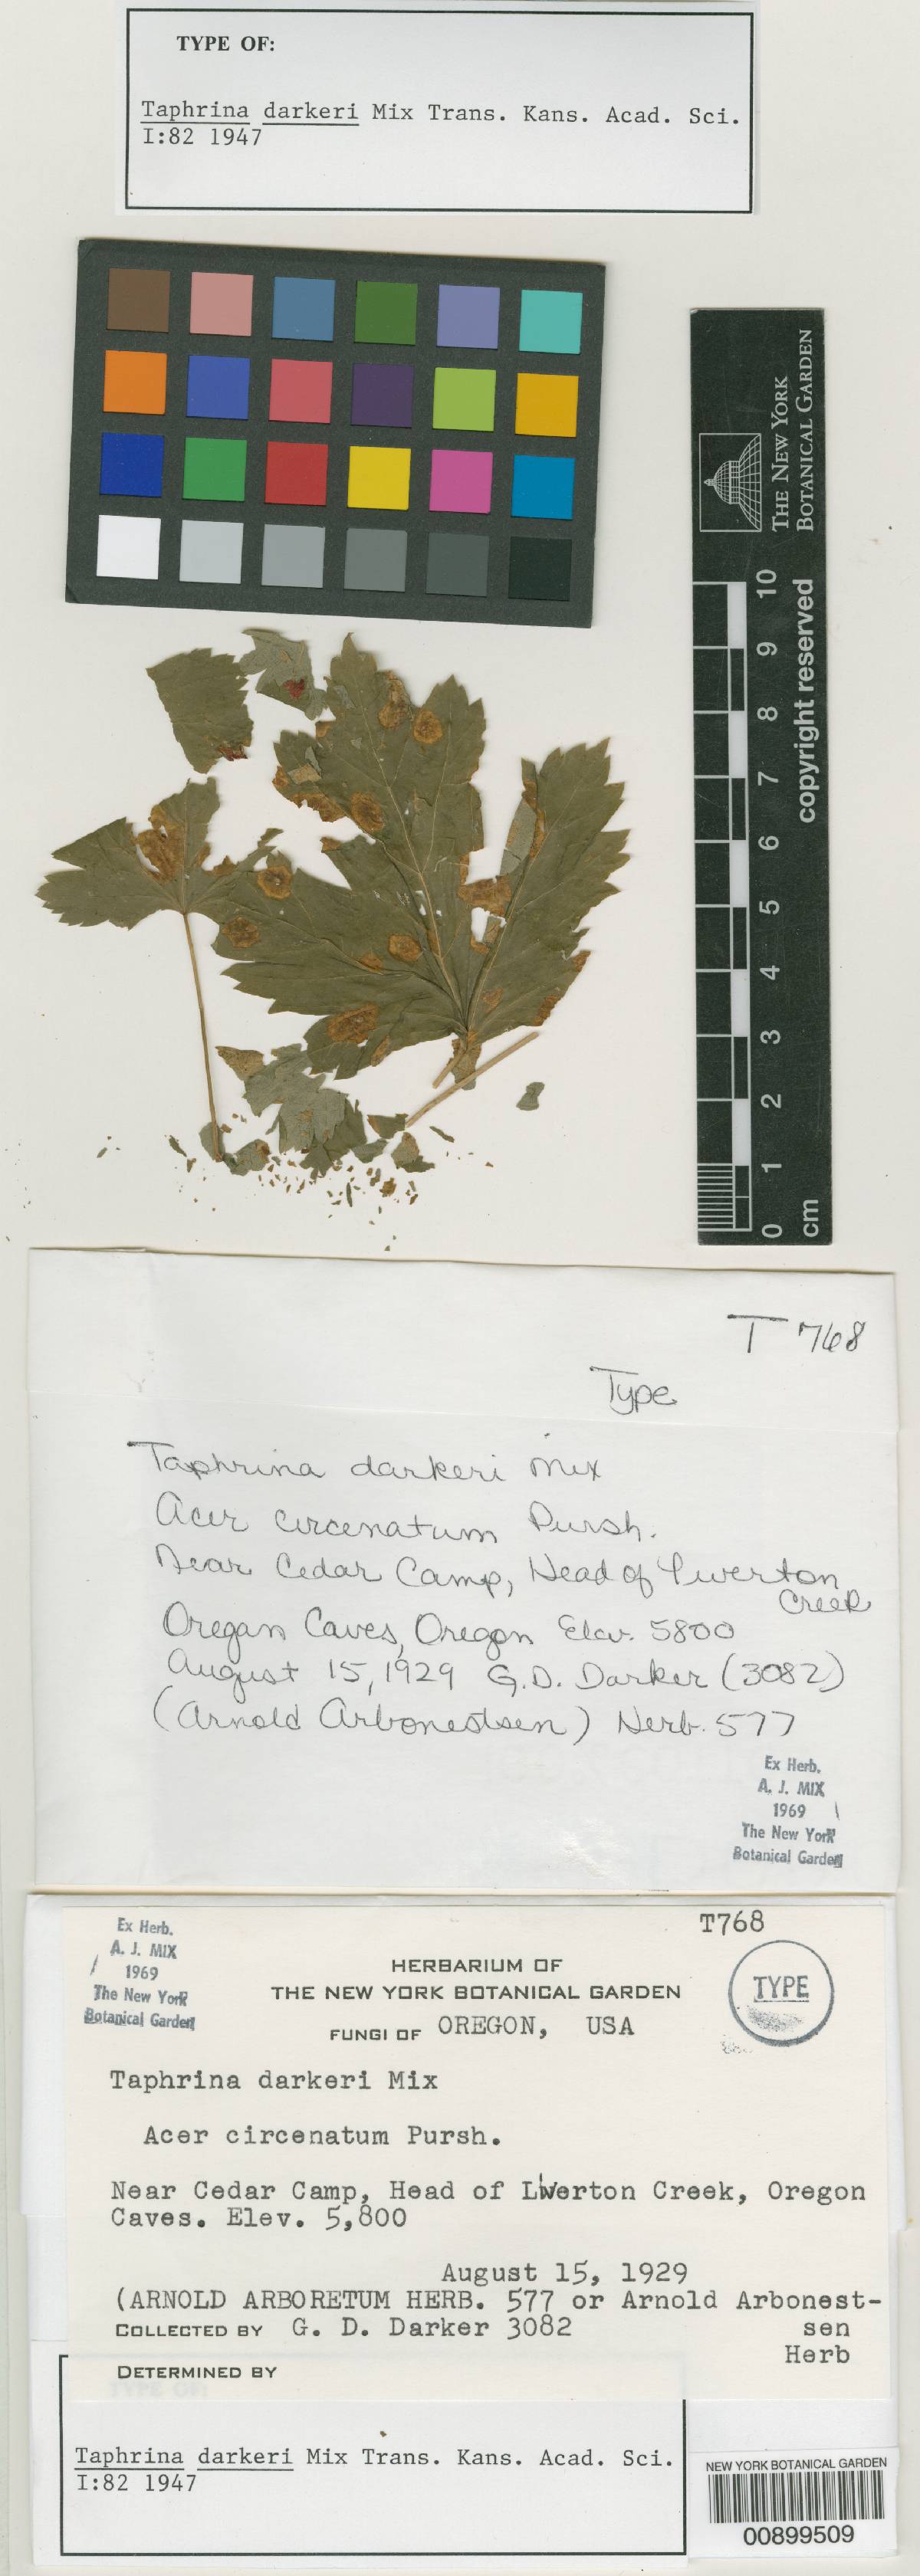 TYPE OF:
Taphrina darkeri Mix Trans. Kans. Acad. Sci.
I:82 1947
THE NEW YORK
BOTANICAL GARDEN
copyright reserved
10
9
8
7
6
5
4
3
2
1
0
cm
T 768
Type
Taphrina darkeri Mix
Acer circenatum Pursh.
Near Cedar Camp, Head of Liverton
Creek
Oregan Caves, Oregon Elev. 5800
August 15, 1929 G.D. Darker (3082)
(Arnold Arbonestsen) Herb. 577
Ex Herb.
A. J. MIX
1969
The New York
Botanical Garden
Ex Herb.
A. J. MIX
1969
The New York
Botanical Garden
T768
TYPE
HERBARIUM OF
THE NEW YORK BOTANICAL GARDEN
FUNGI OF OREGON, USA
Taphrina darkeri Mix
Acer circenatum Pursh.
Near Cedar Camp, Head of Creek, Oregon
Caves. Elev. 5,800
August 15, 1929
(ARNOLD ARBORETUM HERB. 577 or Arnold Arbonest-
sen
COLLECTED BY G. D. Darker 3082
Herb
DETERMINED BY
TYPE OF:
Taphrina darkeri Mix Trans. Kans. Acad. Sci.
I:82 1947
NEW YORK BOTANICAL GARDEN
00899509